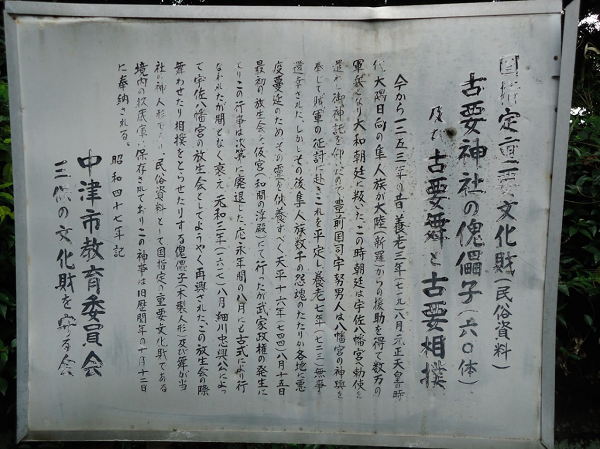 国指定重要文化財(民俗資料)
古要神社の傀儡子(六〇体)
及び古要舞と古要相撲
今から一二五三年の昔、養老三年(七一九)八月元正天皇の時
代大隅日向の隼人族が大陸(新羅)からの援助を得て数万の
軍兵となり大和朝廷に叛いた。この時朝廷は宇佐八幡宮勅使を
遣わし御神託を仰いだので豊前国司宇努男人は八幡宮の神輿を
奉じて賊軍の征討に赴きこれを平定し養老七年(七二三)無事
還幸された。しかしその後隼人族数千の怨魂のたたりか各地に悪
疫蔓延のためその霊を供養すべく天平十六年(七四四)八月十五日
最初の放生会を仮宮(和間の浮殿)にて行ったが武家政権の発生に
よりこの行事は次第に廃退した。応永年間の八月にも古式により行
なわれたが間となく衰え元和三年(一六一七)八月細川忠興公によっ
て宇佐八幡宮の放生会としてようやく再興されたこの放生会の際
舞わせたり相撲をとらせたりする傀儡子(木製人形)及び舞が当
社の神人形であり民俗資料として国指定の重要文化財である
境内の收蔵庫に保存されておりこの神事は旧歴閏年の十月十二日
に奉納される。
昭和四十七年記
中津市教育委員会
三保の文化財を守る会